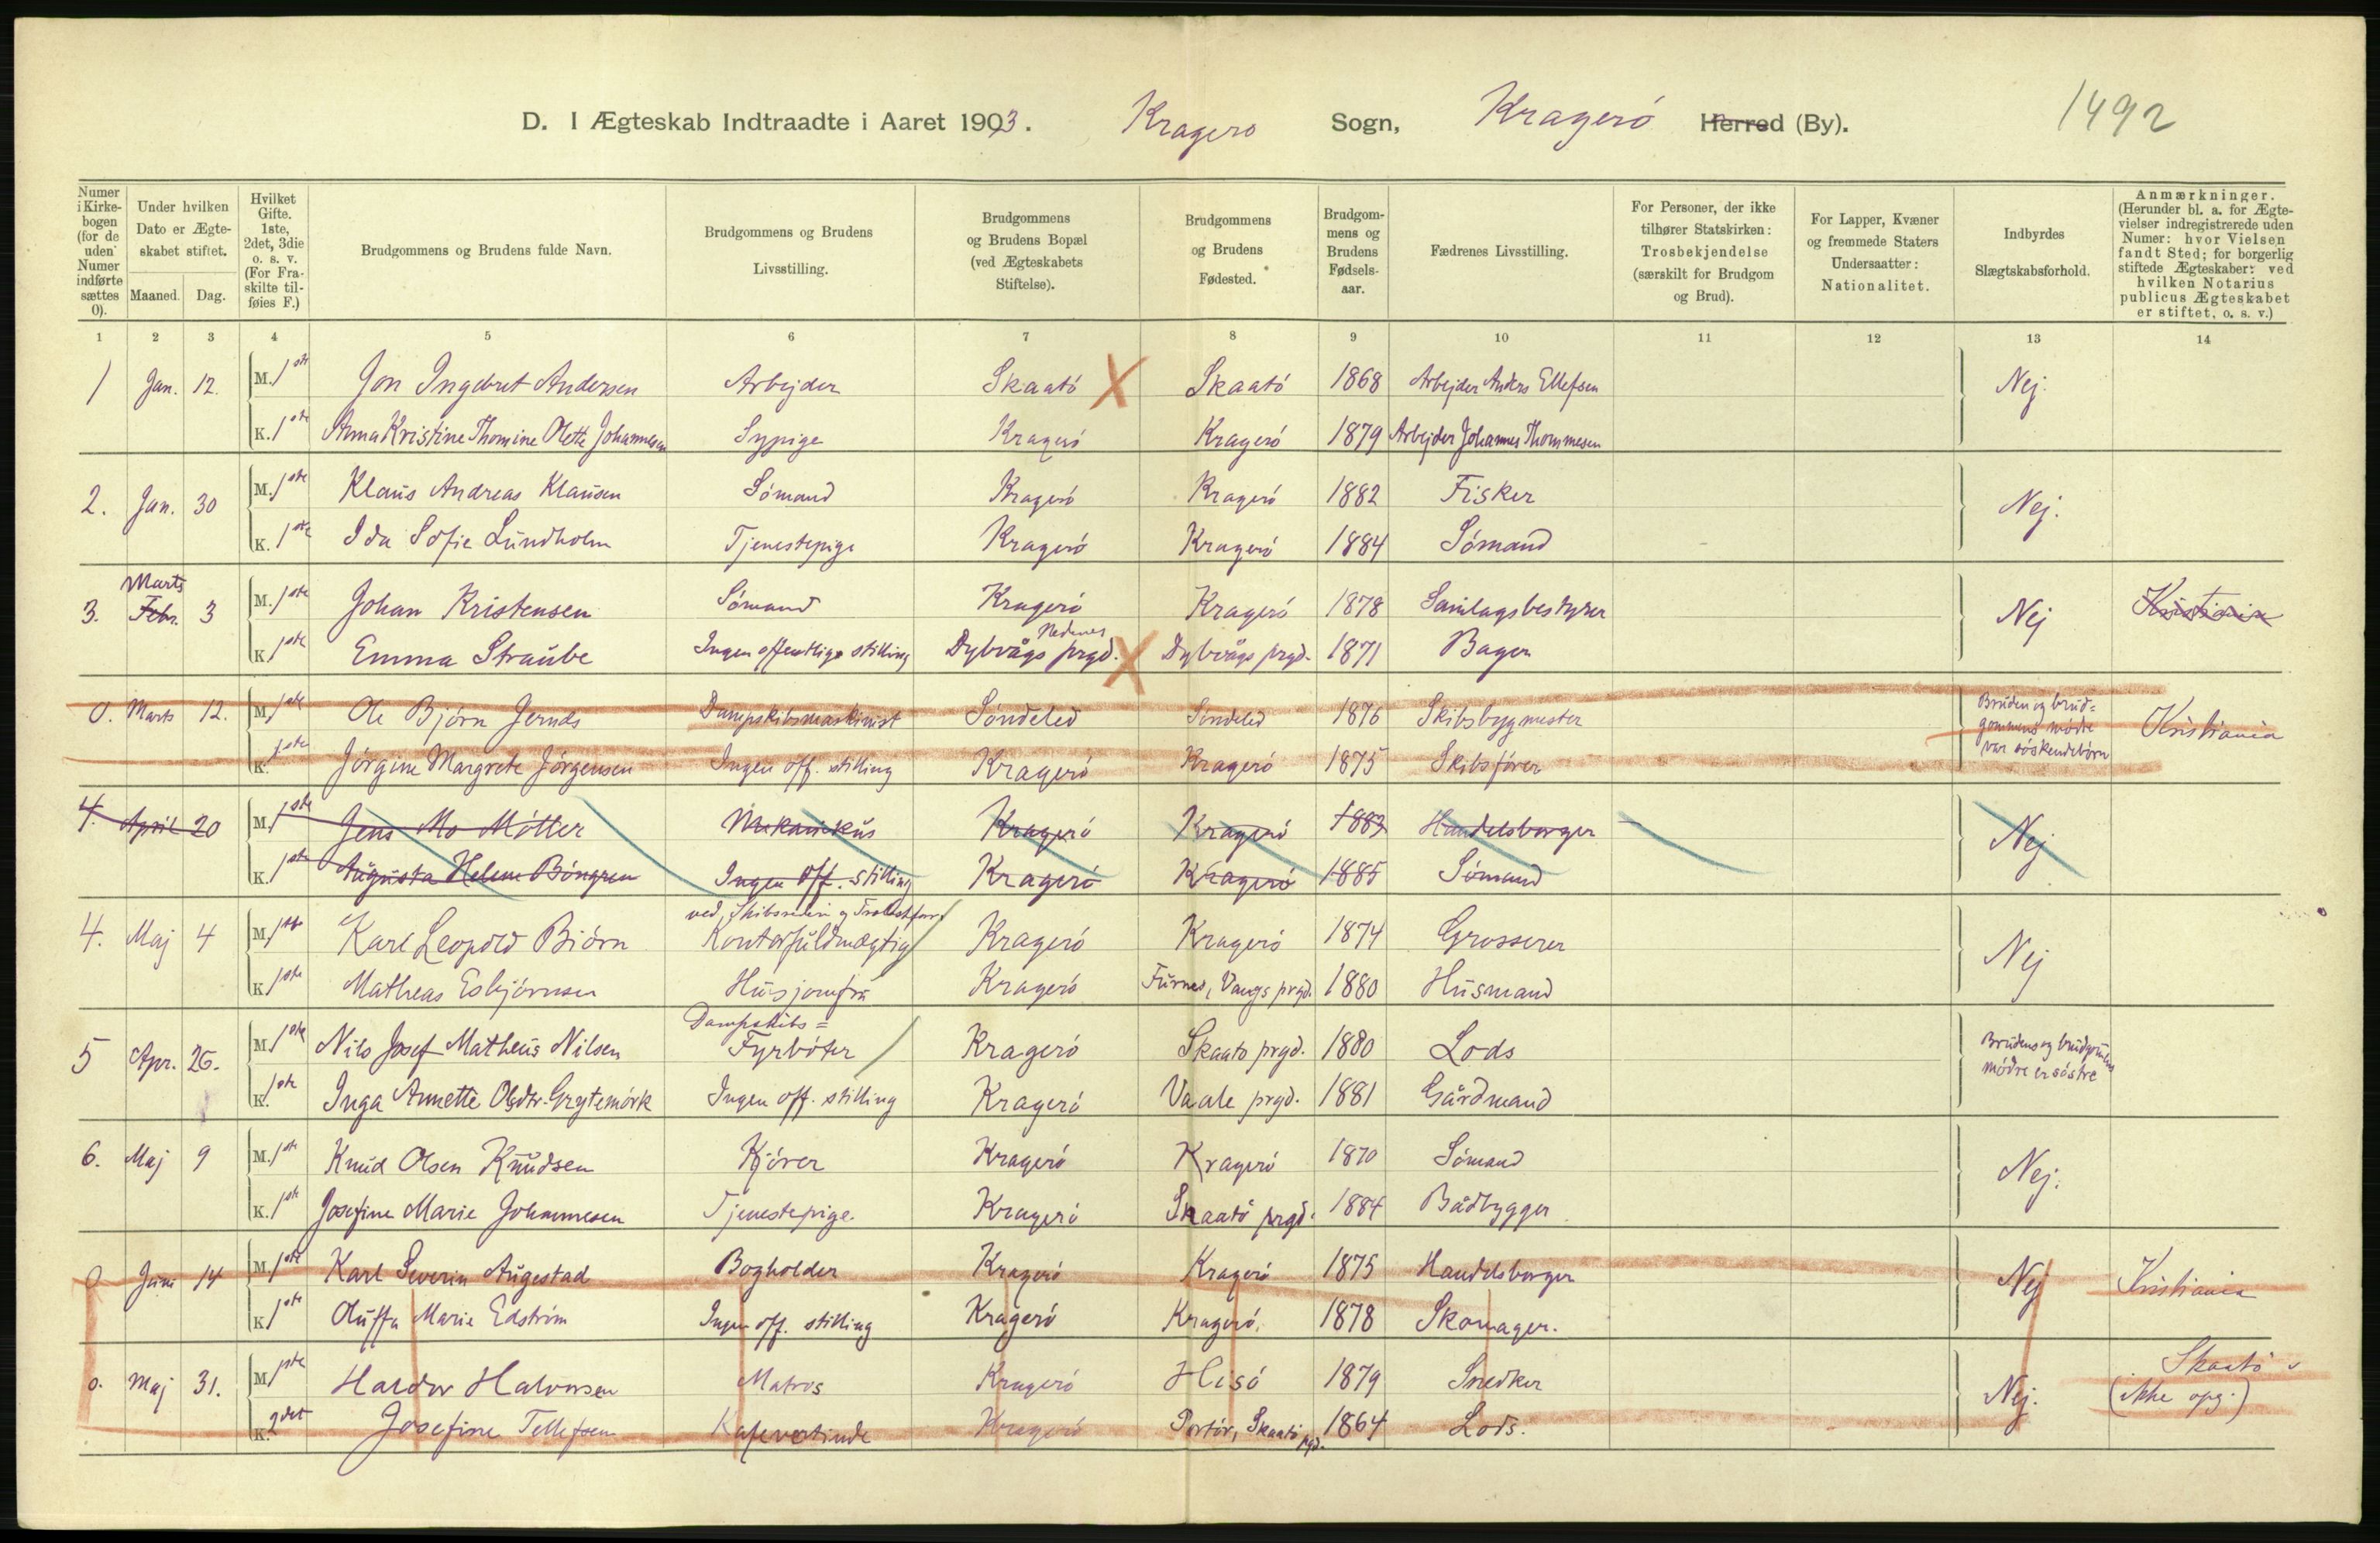 D. I Ægteskab Indtraadte i Aaret 1903. Kragerø Sogn, Kragerø Herred (By). 1492
Numer i Kirkebogen (for de uden Numer indførte sættes 0).
Under hvilken Dato er Ægteskabet stiftet.
Maaned. Dag.
Hvilket Gifte. 1ste, 2det, 3die o. s. v. (For Fraskilte tilføies F.)
Brudgommens og Brudens fulde Navn.
Brudgommens og Brudens Livsstilling.
Brudgommens og Brudens Bopæl (ved Ægteskabets Stiftelse).
Brudgommens og Brudens Fødested.
Brudgommens og Brudens Fødselsaar.
Fædrenes Livsstilling.
For Personer, der ikke tilhører Statskirken: Trosbekjendelse (særskilt for Brudgom og Brud).
For Lapper, Kvæner og fremmede Staters Undersaatter: Nationalitet.
Indbyrdes Slægtskabsforhold.
Anmærkninger. (Herunder bl. a. for Ægtevielser indregistrerede uden Numer: hvor Vielsen fandt Sted; for borgerlig stiftede Ægteskaber: ved hvilken Notarius publicus Ægteskabet er stiftet, o. s. v.)
1 2 3 4 5 6 7 8 9 10 11 12 13 14
1 Jan. 12. M. 1ste Jon Ingebret Andersen Arbejder Skaatø X Skaatø 1868 Arbejder Anders Ellefsen Nej.
K. 1ste Anna Kristine Thomine Olette Johannesen Sypige Kragerø Kragerø 1879 Arbejder Johannes Thommesen
2. Jan. 30 M. 1ste Klaus Andreas Klausen Sømand Kragerø Kragerø 1882 Fisker Nej.
K. 1ste Ida Sofie Lundholm Tjenestepige Kragerø Kragerø 1884 Sømand
3. Febr. Marts 3 M. 1ste Johan Kristensen Sømand Kragerø Kragerø 1878 Samlagsbestyrer Nej Kristiania
K. 1ste Emma Straube Ingen offentlige stilling Dybvågs prgd. Nedenes X Dybvågs prgd. 1871 Bager
0. Marts 12. M. 1ste Ole Bjørn Jernds Dampskibsmaskinist Søndeled Søndeled 1876 Skibsbygmester Bruden og brudgommens mødre var søskendebørn Kristiania
K. 1ste Jørgine Margrete Jørgensen Ingen off. stilling Kragerø Kragerø 1875 Skibsfører
4. April 20 M. 1ste Jens Mo Møller Mekanikus Kragerø Kragerø 1883 Handelsborger Nej
K. 1ste Augusta Helene Bøngren Ingen off. stilling Kragerø Kragerø 1885 Sømand
4. Maj 4 M. 1ste Karl Leopold Biørn Kontorfuldmægtig Kragerø Kragerø 1874 Grosserer Nej
K. 1ste Matheas Esbjørnsen Husjomfru Kragerø Furnes, Vangs prgd. 1880 Husmand
5 Apr. 26. M. 1ste Nils Josef Matheus Nilsen Dampskibs= Fyrbøter Kragerø Skaatø prgd. 1880 Lods Brudens og brudgommens mødre er søstre
K. 1ste Inga Annette Olsdtr. Grytemørk Ingen off. stilling Kragerø Vaale prgd. 1881 Gårdmand
6. Maj 9 M. 1ste Knud Olsen Knudsen Kjører Kragerø Kragerø 1870 Sømand Nej.
K. 1ste Josefine Marie Johannesen Tjenestepige. Kragerø Skaatø prgd. 1884 Bådbygger
0 Juni 14 M. 1ste Karl Severin Augestad Bogholder Kragerø Kragerø 1875 Handelsborger Nej Kristiania
K. 1ste Oluffa Marie Edstrøm Ingen off. stilling Kragerø Kragerø. 1878 Skomager.
0. Maj 31. M. 1ste Haldor Halvorsen Matros Kragerø Hisø 1879 Snedker Nej. Skaatø (ikke opg.)
K. 2det Josefine Tellefsen Kafevertinde Kragerø Portør, Skaatø prgd. 1864 Lods.